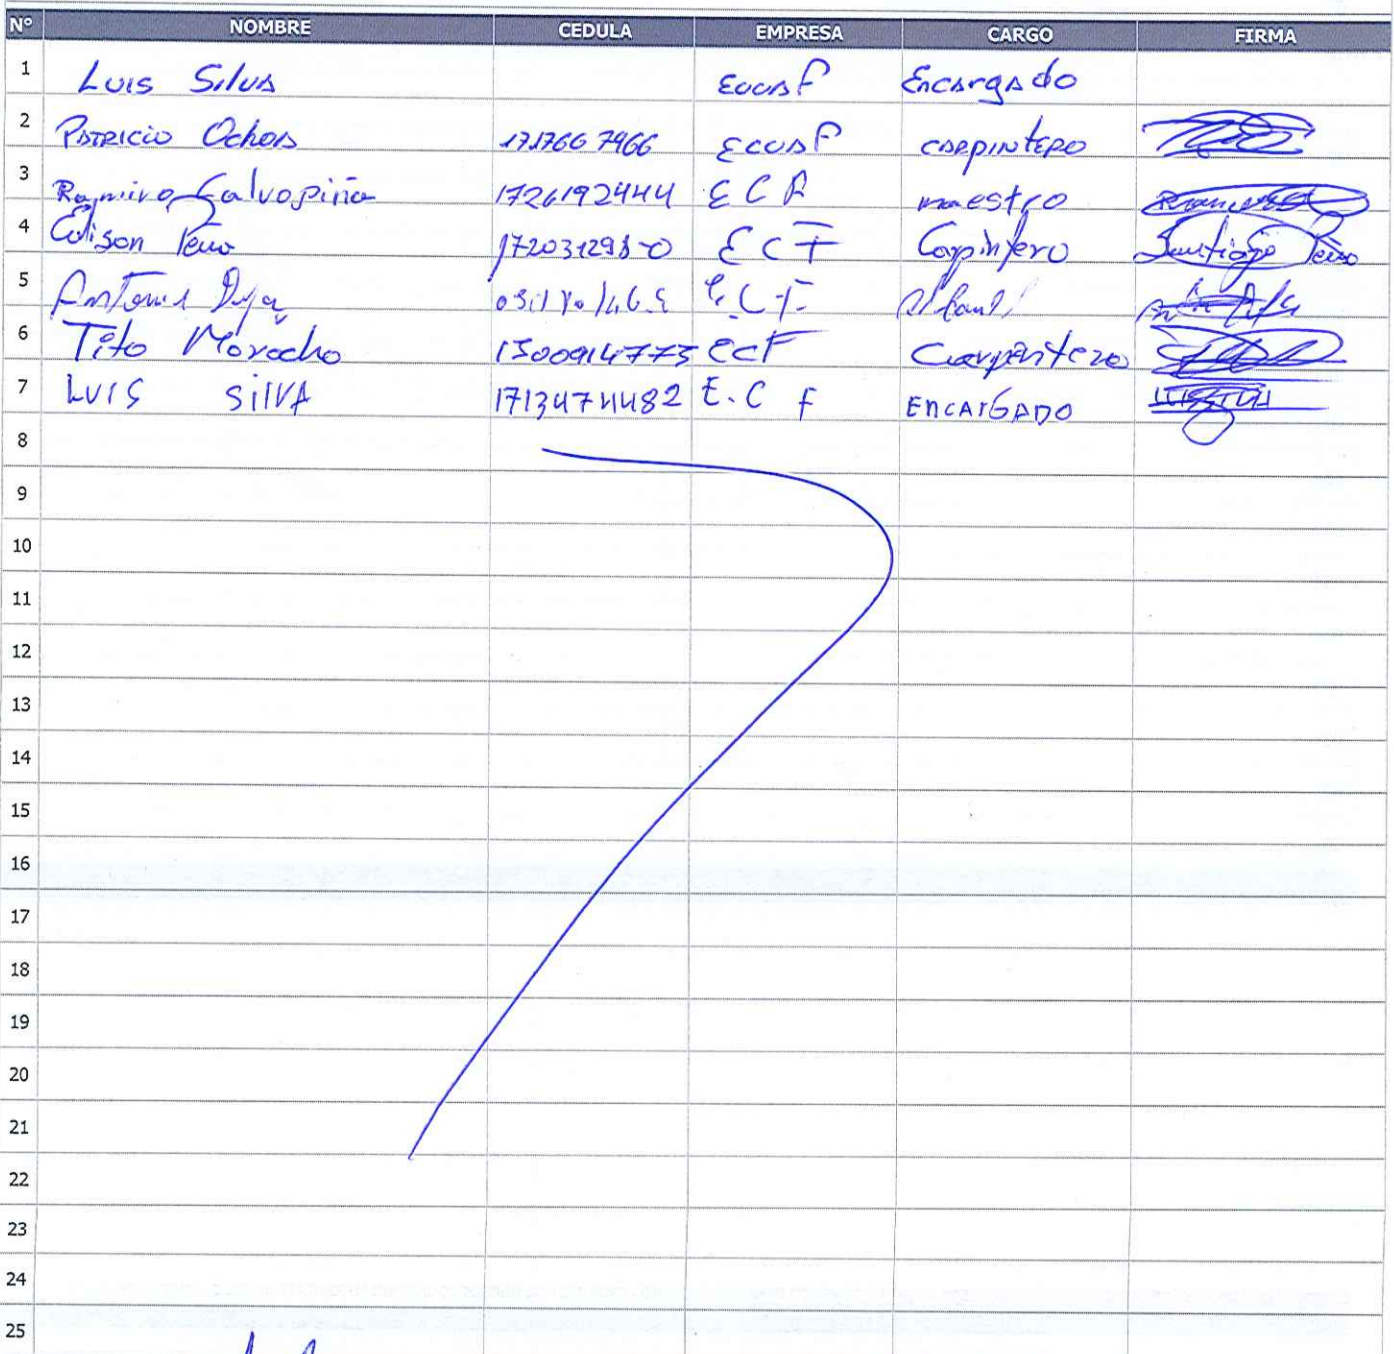 N° NOMBRE CEDULA EMPRESA CARGO FIRMA
1 Luis Silva Ecuaf Encargado
2 Patricio Ochoa 1717667966 Ecuaf carpintero
3 Ramiro Calvopiña 1726192444 E C A maestro
4 Edison Peno E C F Carpintero Santiago
5 Antonio E.C.F.
6 Tito Morocho ECF Carpintero
7 LUIS SILVA 1713474482 E.C F ENCARGADO
8
9
10
11
12
13
14
15
16
17
18
19
20
21
22
23
24
25